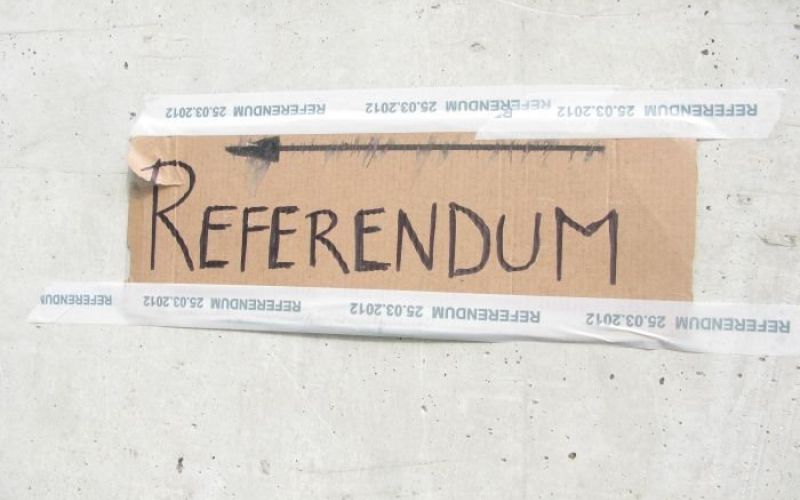 REFERENDUM 25.03.2012 REFERENDUM 25.03.2012 REFERENDUM 25.03.2012
REFERENDUM
REFERENDUM 25.03.2012 REFERENDUM 25.03.2012 REFERENDUM 25.03.2012 REFERENDUM